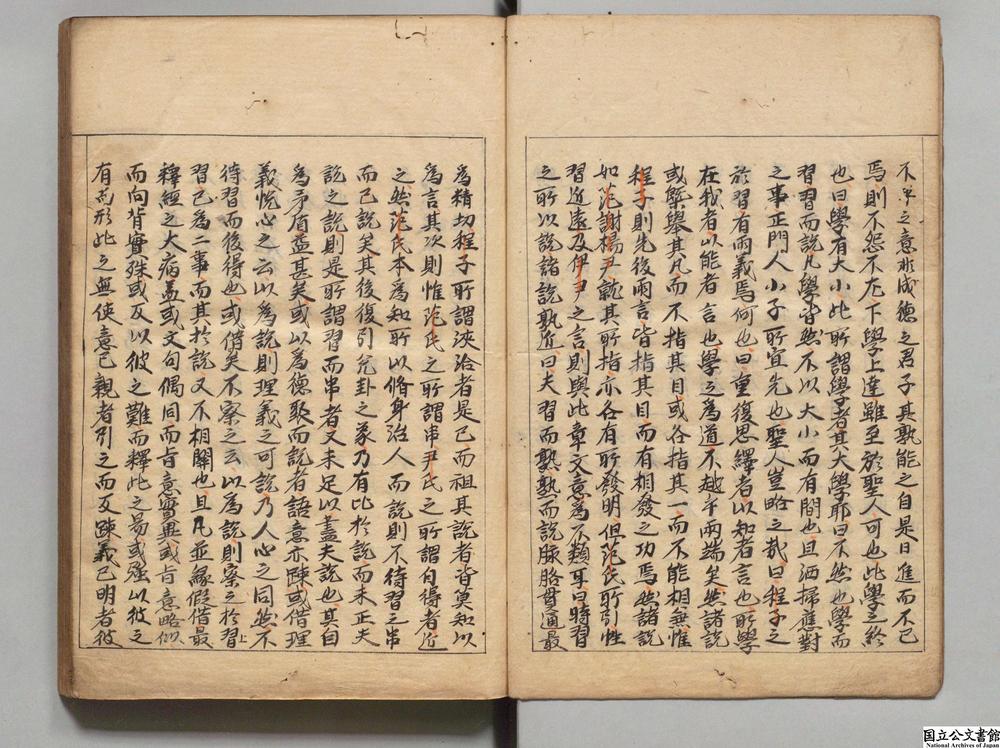 不卒之意形成德之君子其孰能之自是日進而不已
焉則不怨不尤下學上達雖至於聖人可也此學之終
也曰學有大小此所謂學者其大學耶曰不然也學而
習習而說凡學皆然不以大小而有間也且洒掃應對
之事正門人小子所宜先也聖人豈略之哉曰程子之
於習有兩義焉何也曰重復思繹者以知者言也所學
在我者以能者言也學之為道不越乎兩端矣然諸說
或槩舉其凡而不指其目或各指其一而不能相兼惟
程子則先後兩言皆指其目而有相發之功焉然諸說
如范謝楊尹就其所指亦各有所發明但范氏所引性
習近遠及伊尹之言則與此章文意為不類耳曰時習
之所以說諸說孰近曰夫習而熟熟而說脉胳貫通最
為精切程子所謂浹洽者是已而祖其說者皆莫知以
為言其次則惟范氏之所謂串尹氏之所謂自得者近
之然范氏本為知所以脩身治人而說則不待習之串
而已說矣其後後引兊卦之彖乃有比於說而未正夫
說之說則是所謂習而串者又未足以盖夫說也其自
為矛盾益甚矣或以為德聚而說者語意亦踈或借理
義悅心之云以為說則理義之可說乃人心之同然不
待習而後得也或借矣不察之云以為說則察之於習
上
習已為二事而其於說又不相關也且凡並緣假借最
釋經之大病盖或文句偶同而旨意實異或旨意略似
而向背實殊或反以彼之難而釋此之易或強以彼之
有而形此之無使意已親者引之而反踈義已明者彼
国立公文書館
National Archives of Japan